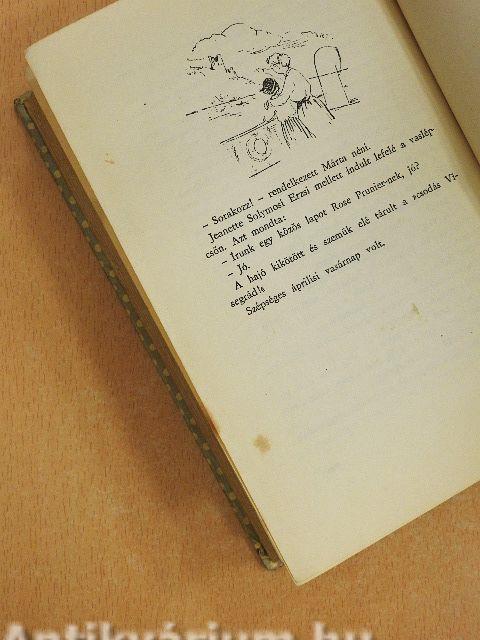 – Sorakozz! – rendelkezett Márta néni.
Jeanette Solymosi Erzsi mellett indult lefelé a vaslép-
csőn. Azt mondta:
– Írunk egy közös lapot Rose Prunier-nek, jó?
– Jó.
A hajó kikötött és szemük elé tárult a »csodás Vi-
segrád!«
Szépséges áprilisi vasárnap volt.
Antikvárium.hu